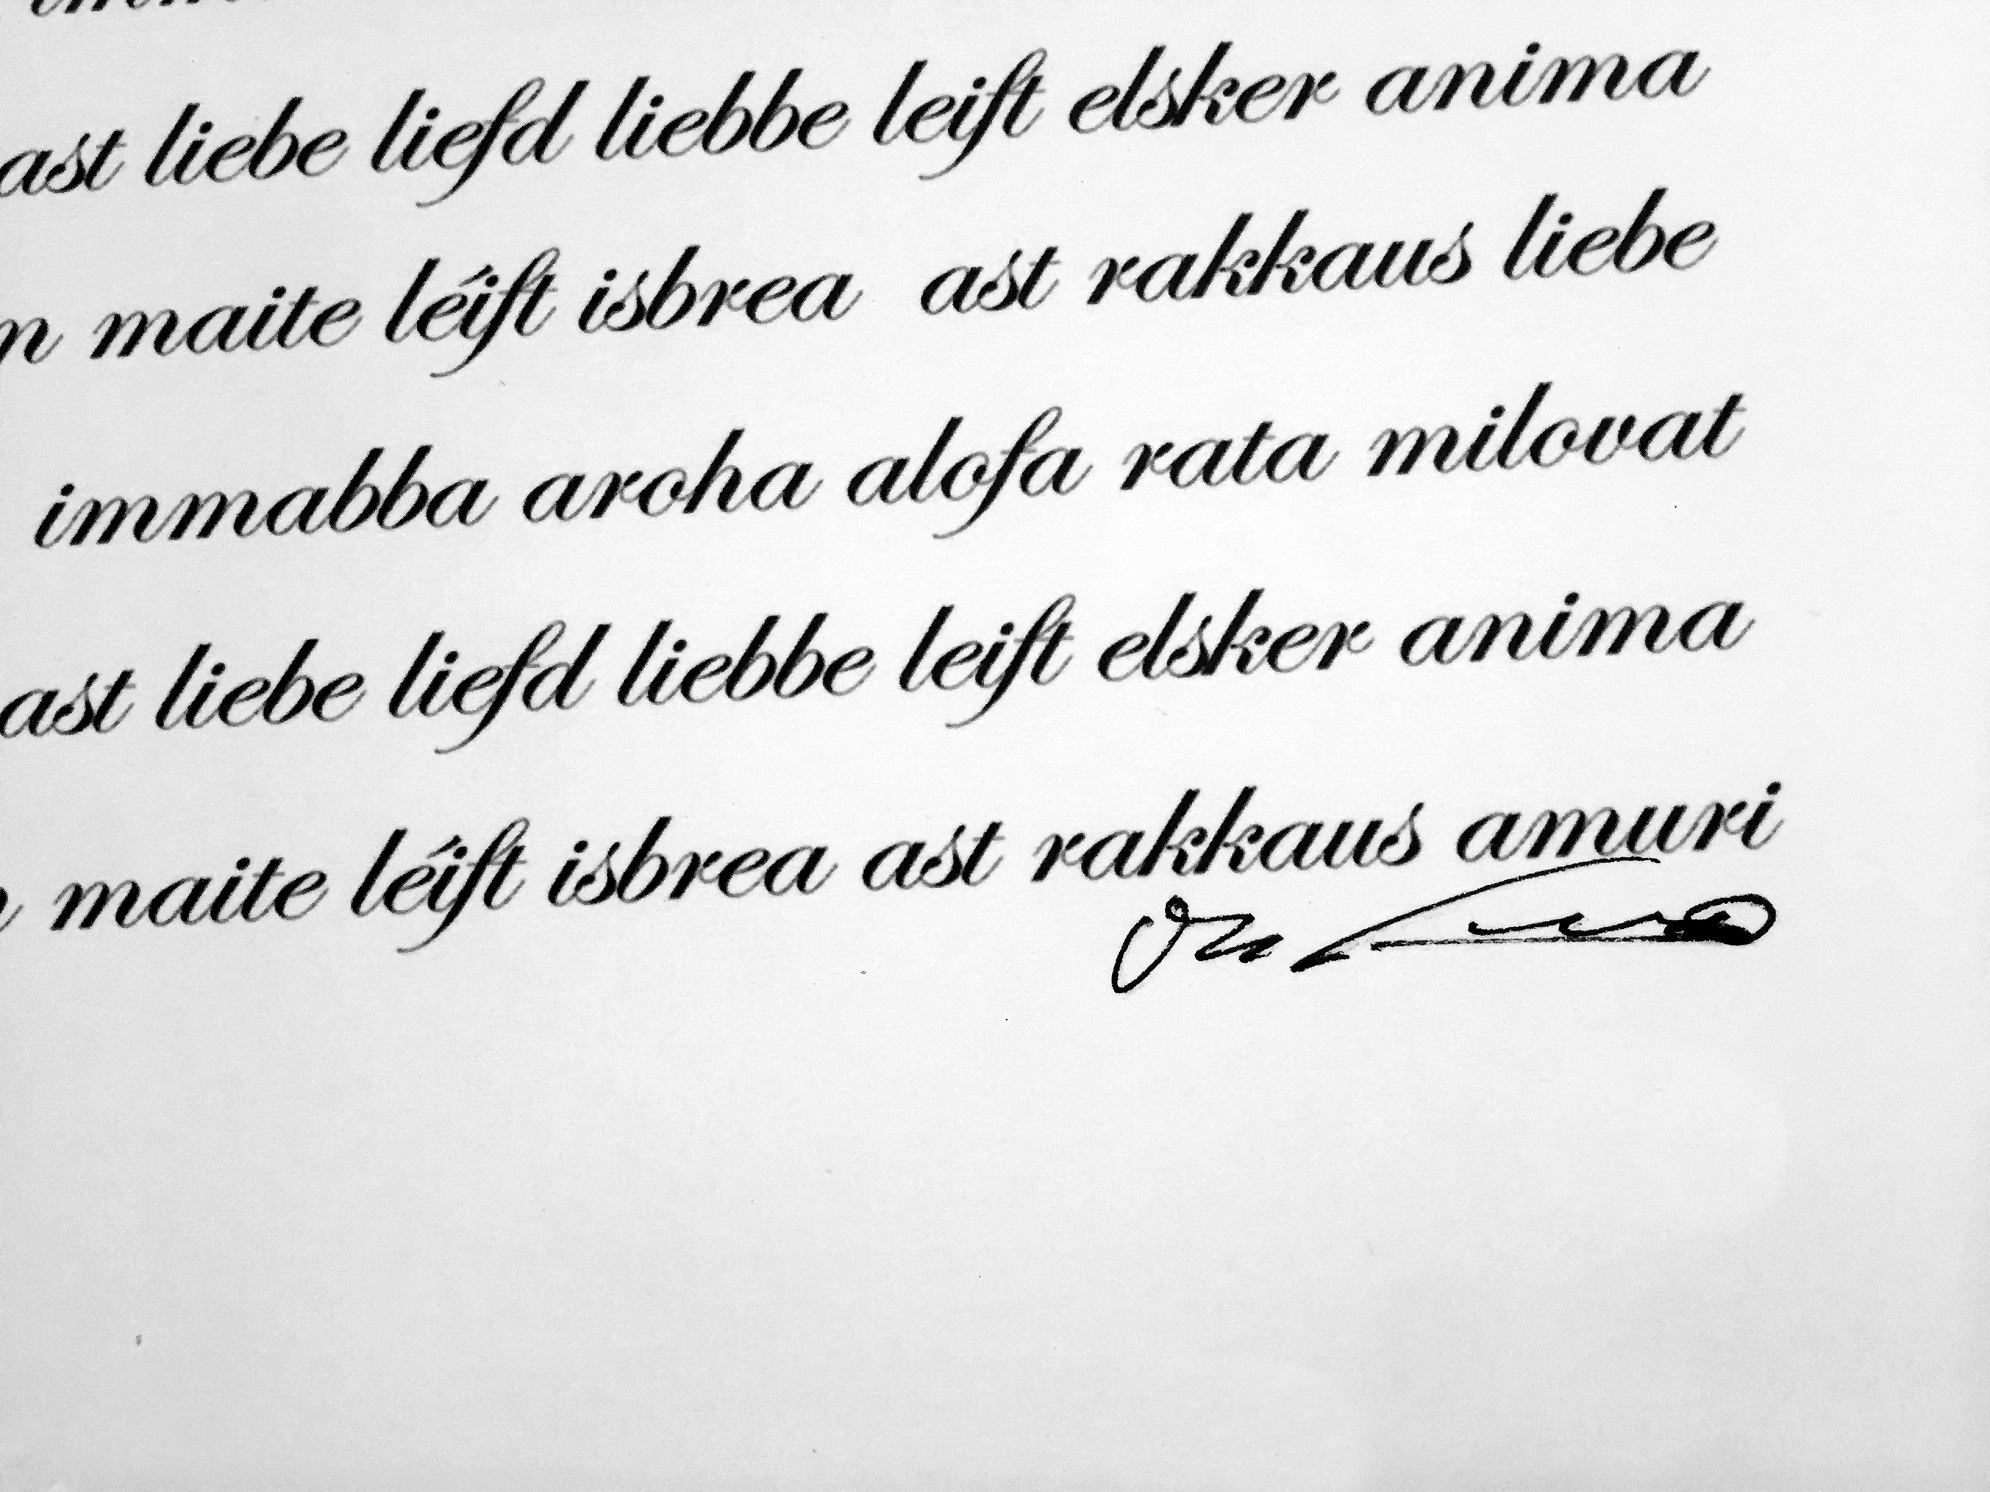 ast liebe liefd liebbe leift elsker anima
maite léift isbrea ast rakkaus liebe
immabba aroha alofa rata milovat
ast liebe liefd liebbe leift elsker anima
maite léift isbrea ast rakkaus amuri